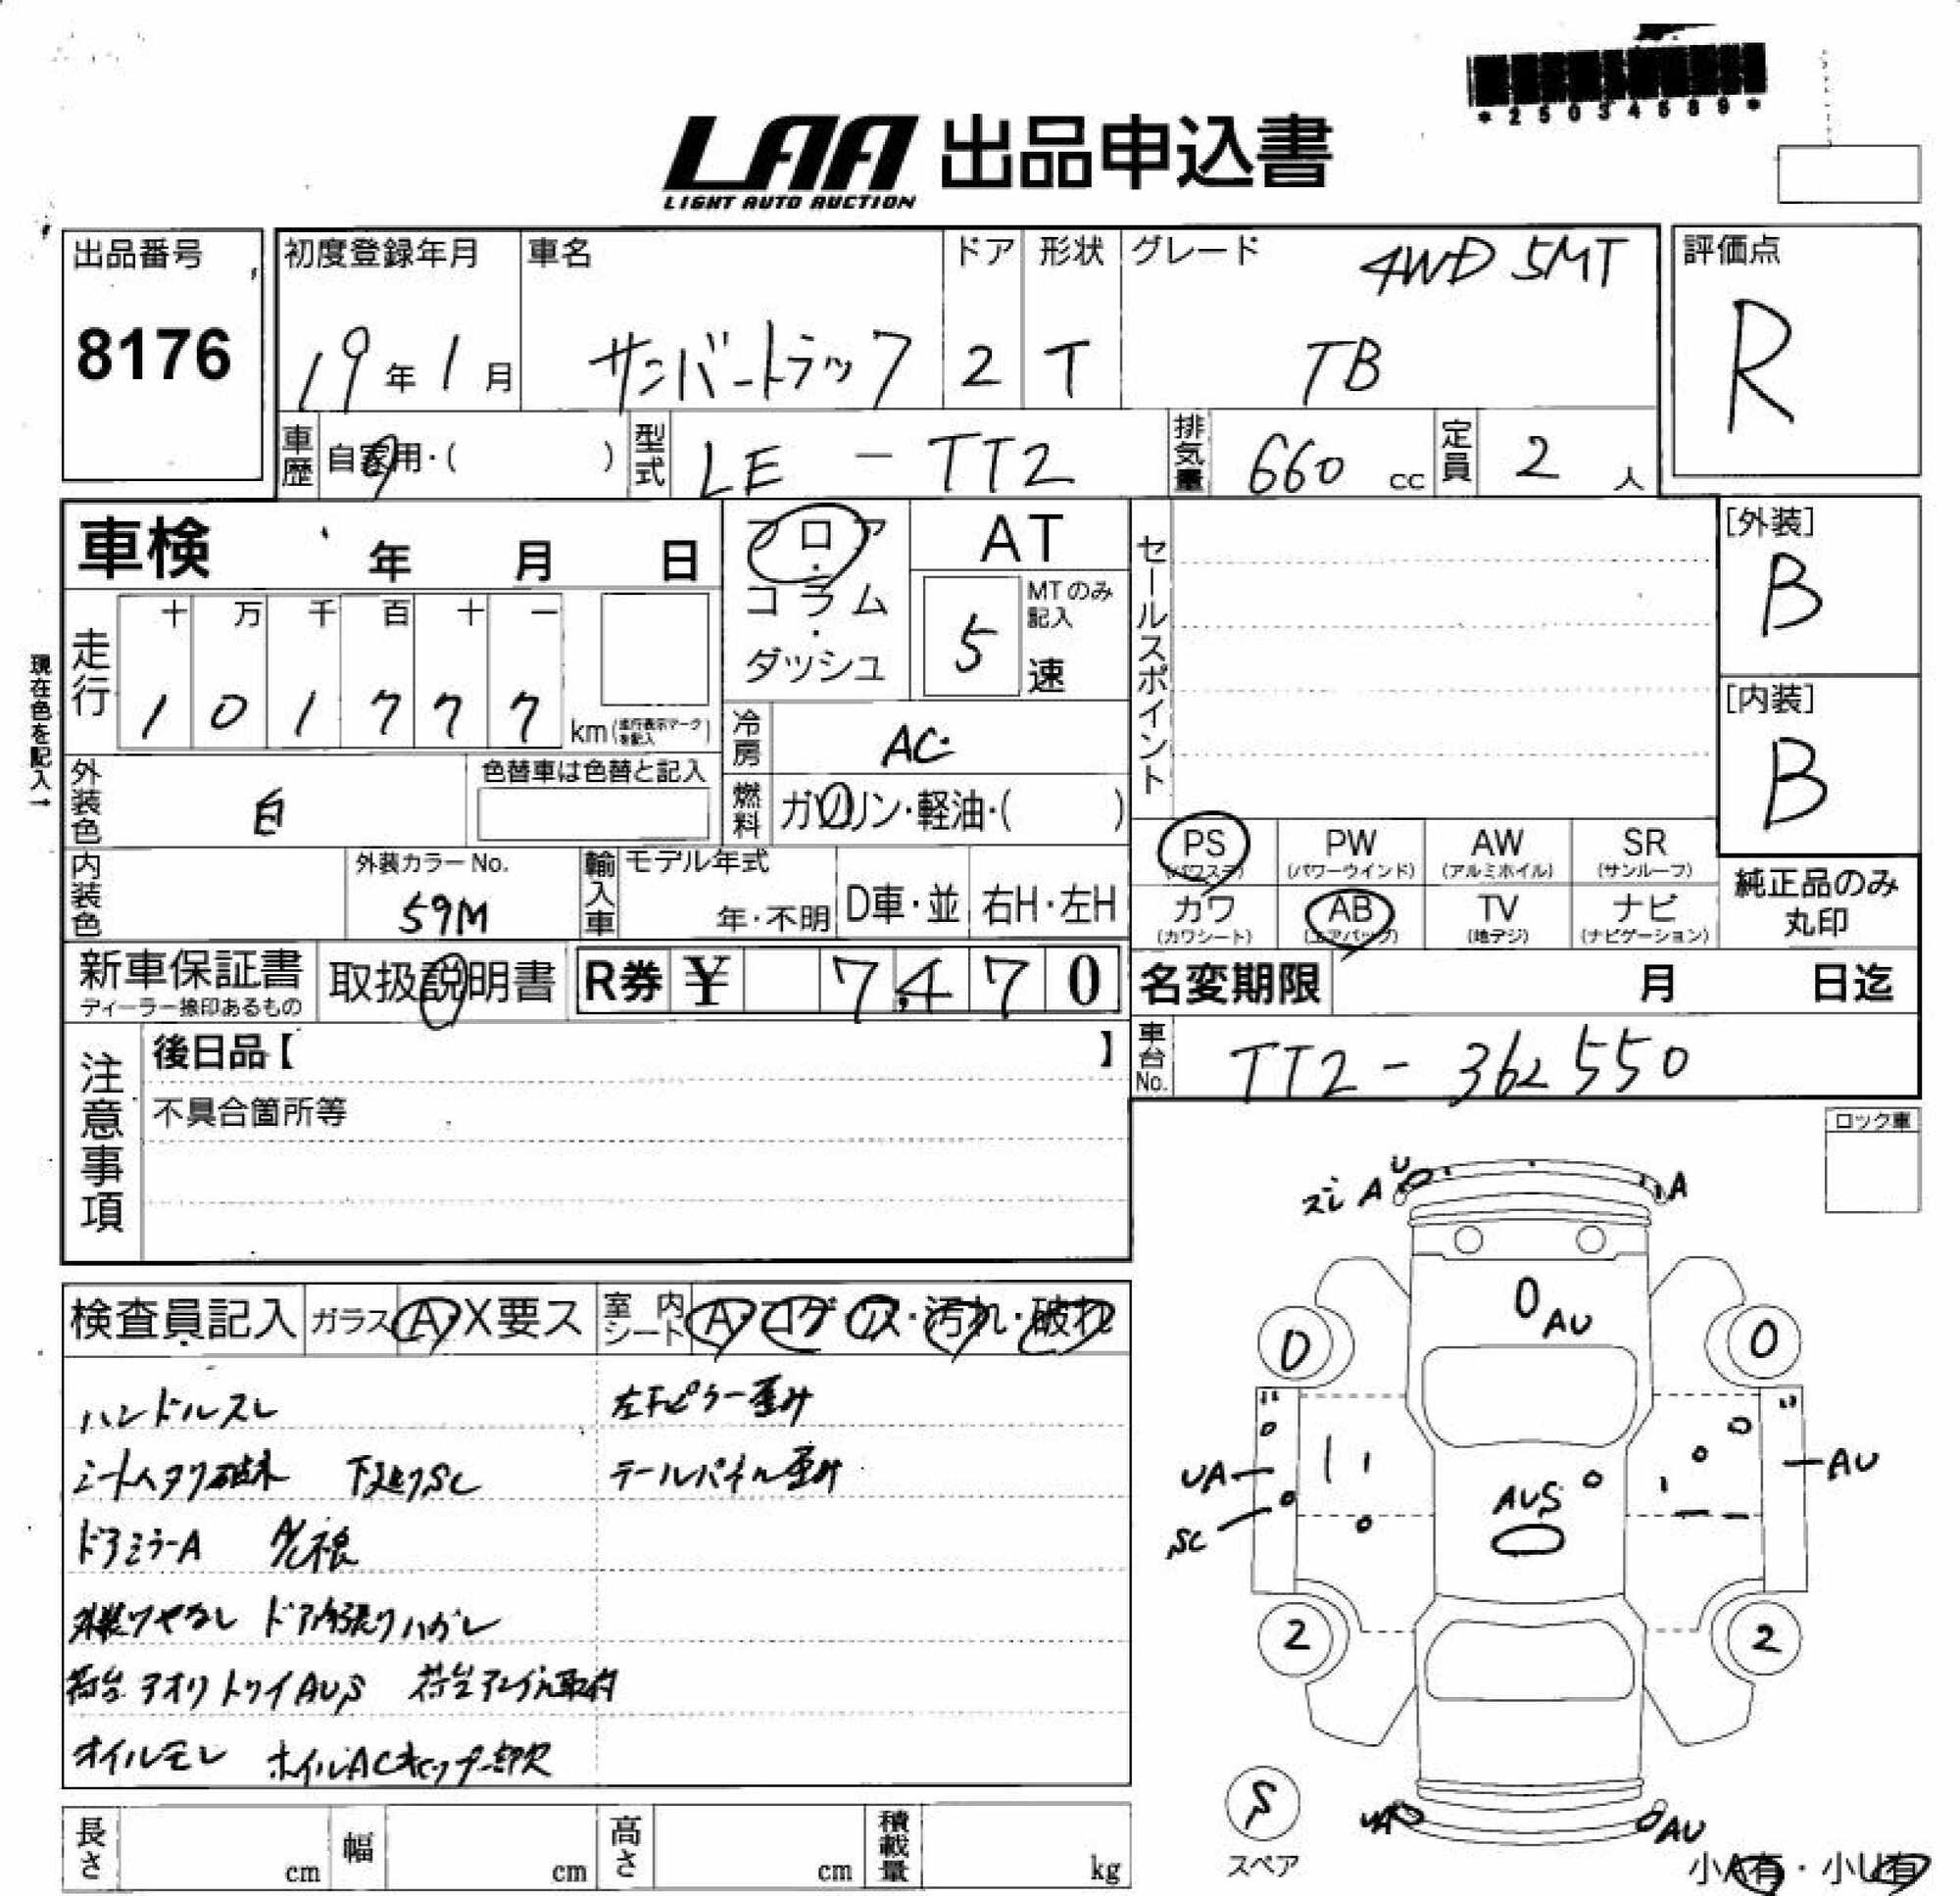 *25034689*
LAA 出品申込書
LIGHT AUTO AUCTION
出品番号
8176
初度登録年月
19年1月
車名
サンバートラック
ドア
2
形状
T
グレード
4WD 5MT
TB
評価点
R
車歴 自家用・( )
型式 LE - TT2
排気量 660 cc
定員 2 人
車検 年 月 日
フロア・コラム・ダッシュ
AT
MTのみ記入
5 速
セールスポイント
[外装]
B
[内装]
B
現在色を記入→
走行
十 万 千 百 十 一
1 0 1 7 7 7
km(走行表示マークを記入)
冷房 AC
外装色 白
色替車は色替と記入
燃料 ガソリン・軽油・( )
PS (パワステ)
PW (パワーウインド)
AW (アルミホイル)
SR (サンルーフ)
カワ (カワシート)
AB (エアバック)
TV (地デジ)
ナビ (ナビゲーション)
純正品のみ丸印
内装色
外装カラーNo.
59M
輸入車 モデル年式
年・不明
D車・並
右H・左H
新車保証書
ディーラー捺印あるもの
取扱説明書
R券 ¥ 7,470
名変期限 月 日迄
車台No. TT2-362550
注意事項
後日品【 】
不具合箇所等
ロック車
検査員記入
ガラス A・X要ス
室内シート A・コゲ・ス・汚れ・破れ
ハンドルスレ
左Fピラー歪み
シートヘタリ破れ 下廻りSC
テールパネル歪み
ドアミラーA
外装ツヤなし ドア内張りハガレ
荷台アオリトリイAUS
オイルモレ ホイルACキャップ欠
U
ズレ A
A
AU
0
0
UA
AU
SC
AUS
2
2
S
スペア
UA
AU
小A有・小U有
長さ cm
幅 cm
高さ cm
積載量 kg